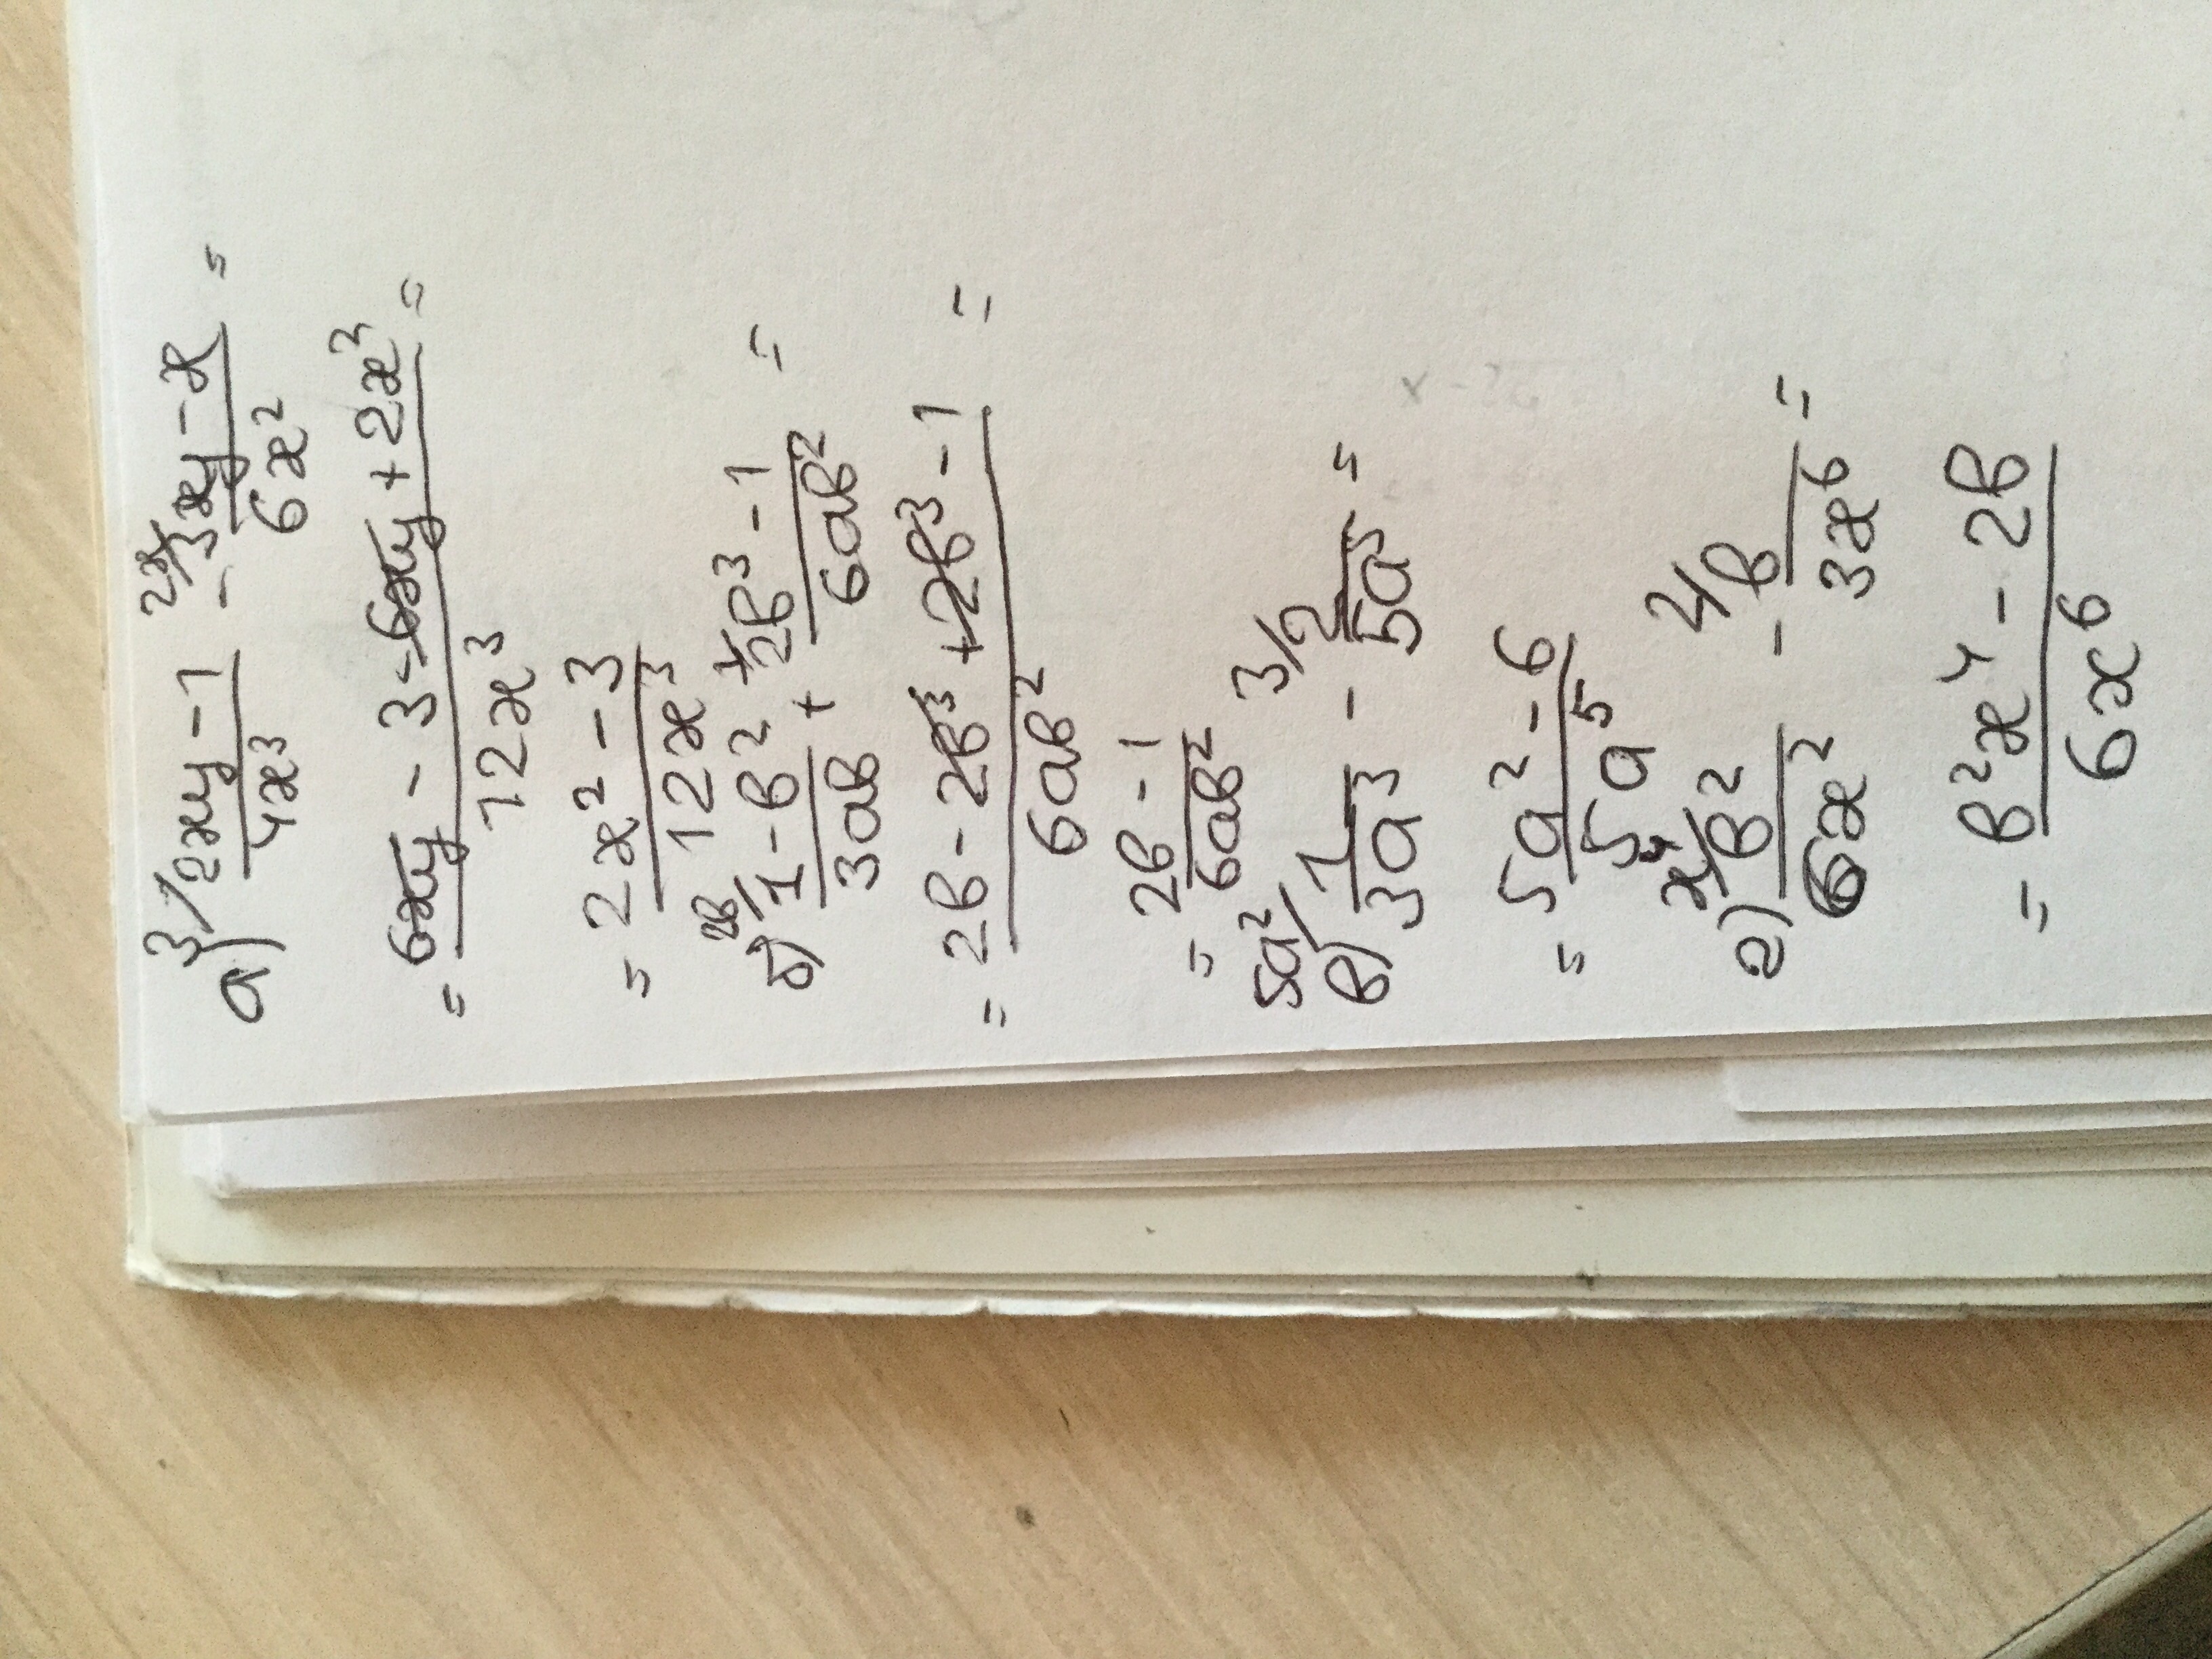 а) ³/ (2xy - 1)/(4x³) - ²ˣ/ (3xy - x)/(6x²) =
= (6xy - 3 - 6xy + 2x³)/(12x³) =
= (2x² - 3)/(12x³)
б) ²ᵇ/ (1 - b²)/(3ab) + ¹/ (2b³ - 1)/(6ab²) =
= (2b - 2b³ + 2b³ - 1)/(6ab²) =
= (2b - 1)/(6ab²)
в) ⁵ᵃ²/ 1/(3a³) - ³/ 2/(5a⁵) =
= (5a² - 6)/(5a⁵)
г) ˣ⁴/ b²/(6x²) - ²/ b/(3x⁶) =
= (b²x⁴ - 2b)/(6x⁶)